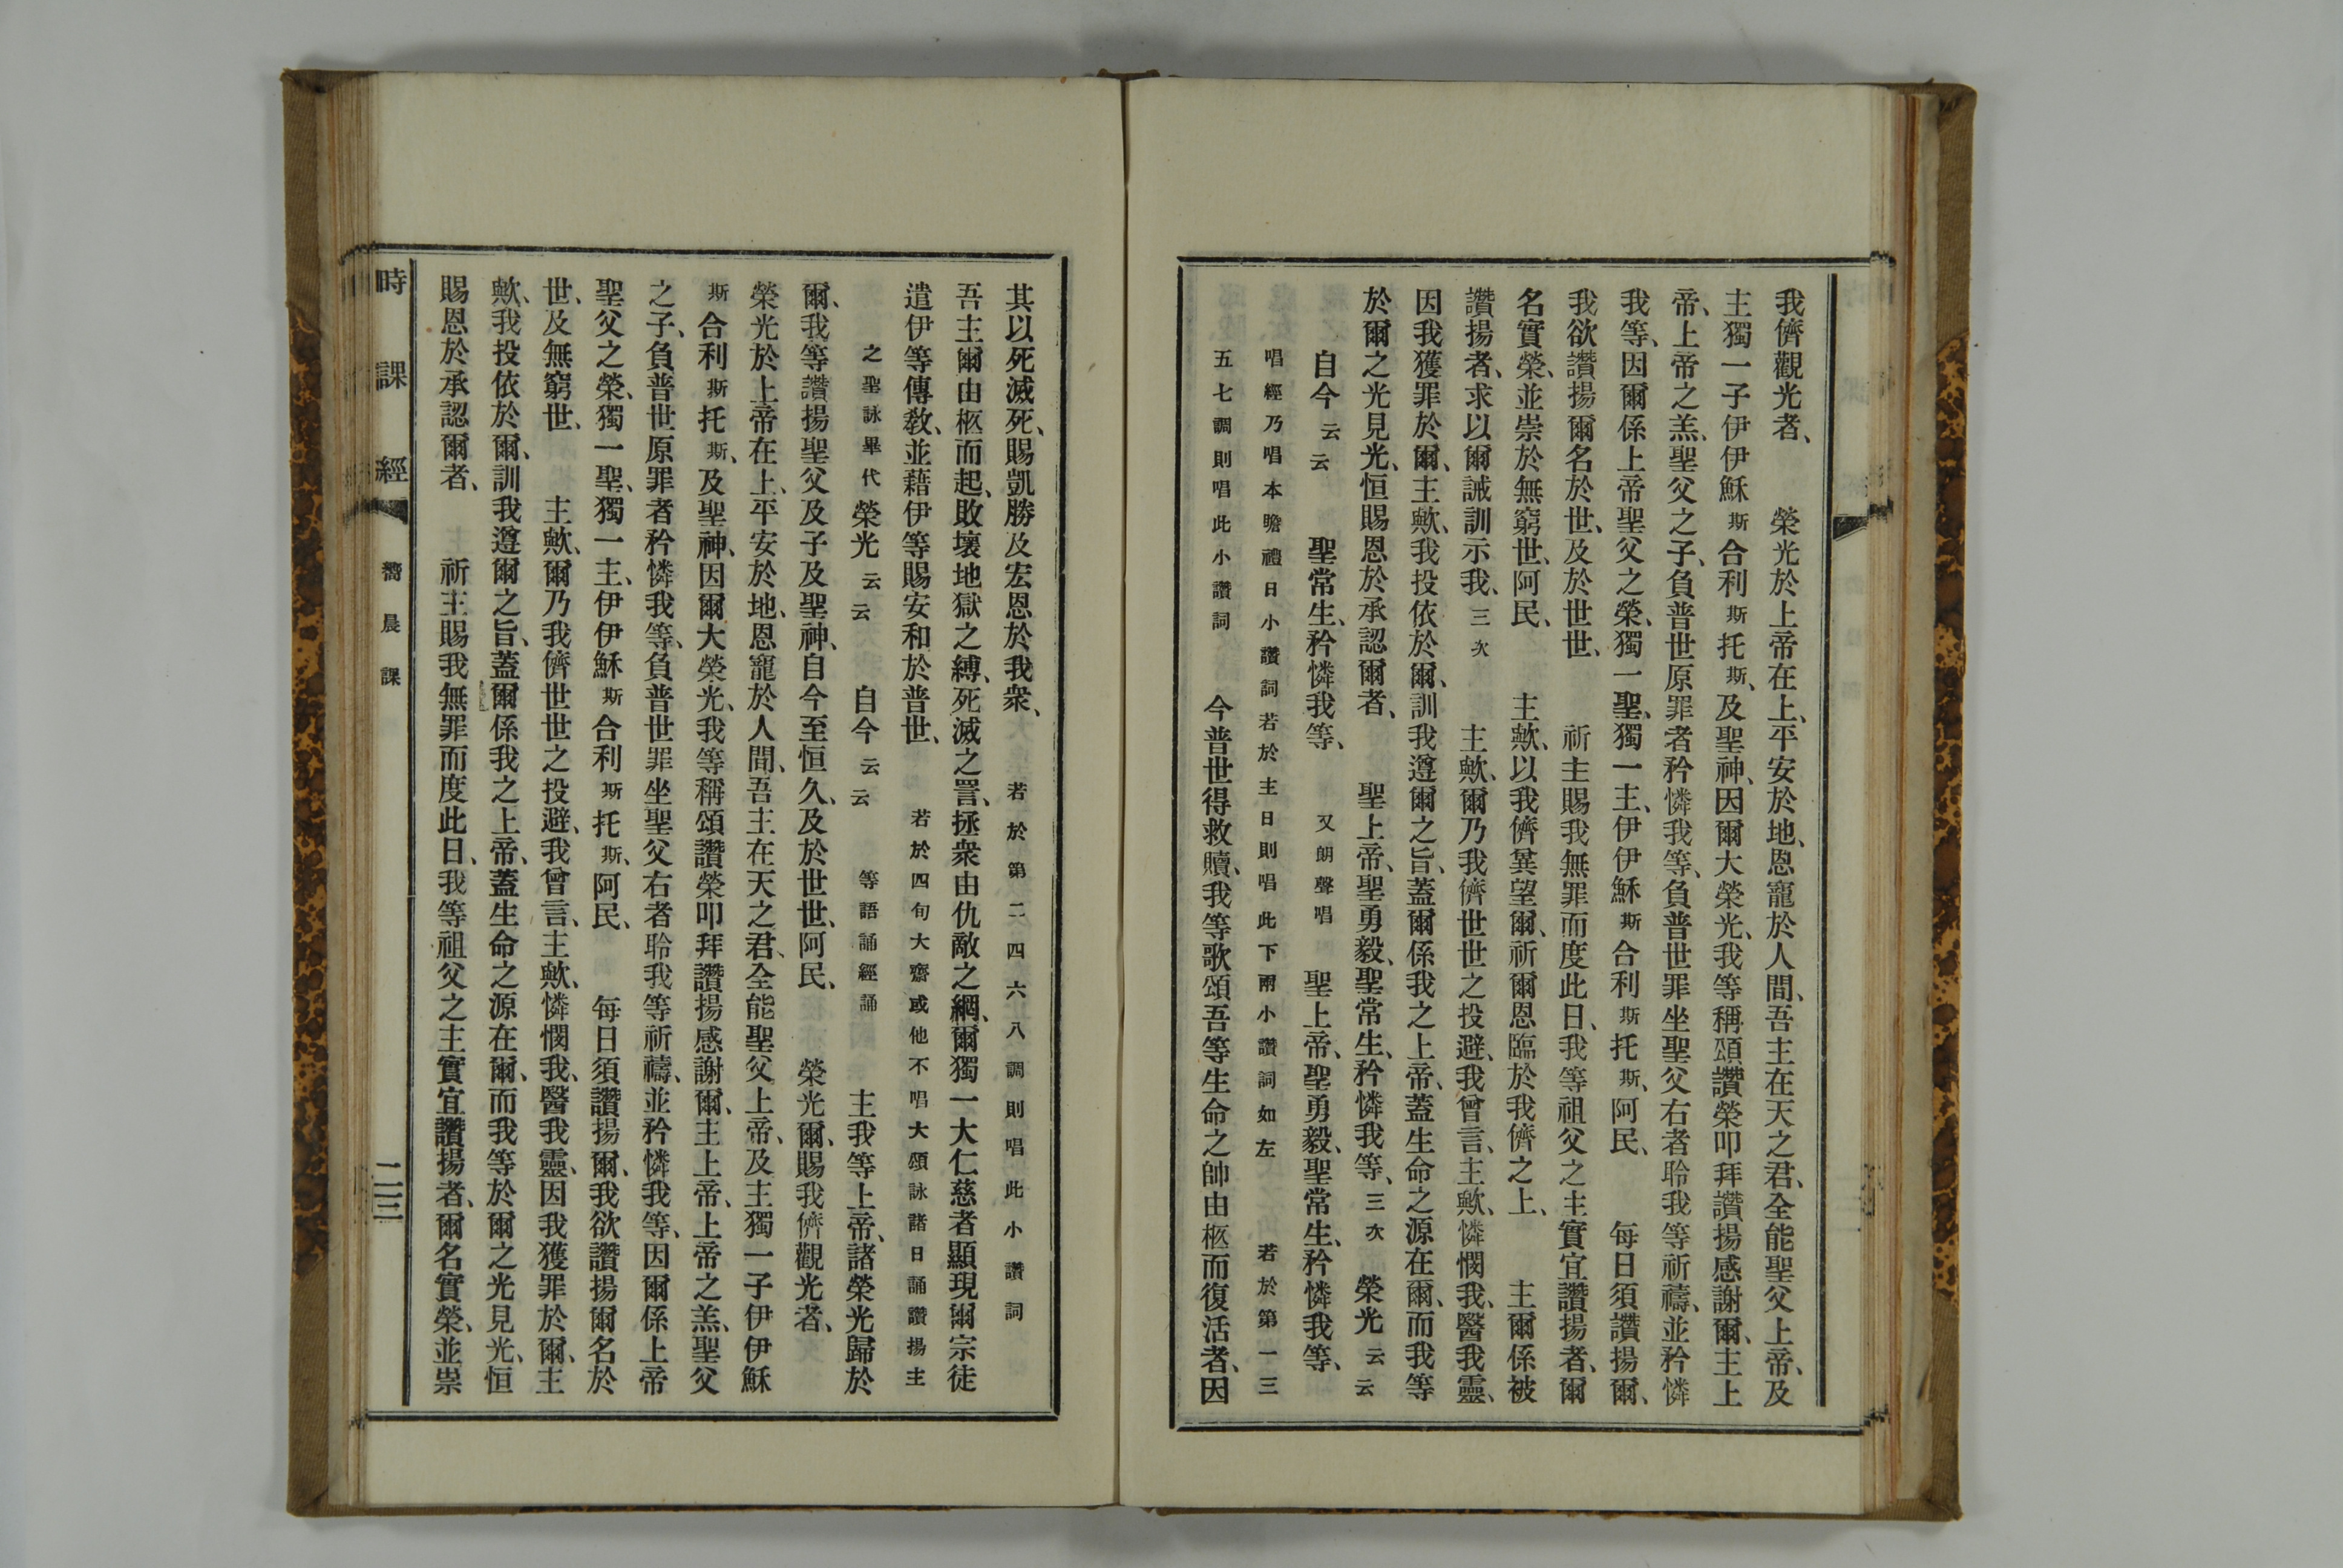 我儕觀光者、　榮光於上帝在上、平安於地、恩寵於人間、吾主在天之君、全能聖父上帝、及
主獨一子伊伊穌斯合利斯托斯、及聖神、因爾大榮光、我等稱頌讚榮叩拜讚揚感謝爾、主上
帝、上帝之羔、聖父之子、負普世原罪者矜憐我等、負普世罪坐聖父右者聆我等祈禱、並矜憐
我等、因爾係上帝聖父之榮、獨一聖、獨一主、伊伊穌斯合利斯托斯、阿民、　每日須讚揚爾、
我欲讚揚爾名於世、及於世世、　祈主賜我無罪而度此日、我等祖父之主實宜讚揚者、爾
名實榮、並崇於無窮世、阿民、　主歟、以我儕兾望爾、祈爾恩臨於我儕之上、　主爾係被
讚揚者、求以爾誡訓示我、三次　主歟、爾乃我儕世世之投避、我曾言、主歟、憐憫我、醫我靈、
因我獲罪於爾、主歟、我投依於爾、訓我遵爾之旨、蓋爾係我之上帝、蓋生命之源在爾、而我等
於爾之光見光、恒賜恩於承認爾者、　聖上帝、聖勇毅、聖常生、矜憐我等、三次　榮光云云
自今云云　聖常生、矜憐我等、　又朗聲唱　聖上帝、聖勇毅、聖常生、矜憐我等、
唱經乃唱本瞻禮日小讚詞若於主日則唱此下兩小讚詞如左　若於第一三
五七調則唱此小讚詞　今普世得救贖、我等歌頌吾等生命之帥由柩而復活者、因
其以死滅死、賜凱勝及宏恩於我衆、　若於第二四六八調則唱此小讚詞
吾主爾由柩而起、敗壞地獄之縛、死滅之詈、拯衆由仇敵之網、爾獨一大仁慈者顯現爾宗徒
遣伊等傳敎、並藉伊等賜安和於普世、　若於四旬大齋或他不唱大頌詠諸日誦讚揚主
之聖詠畢代榮光云云　自今云云　等語誦經誦　主我等上帝、諸榮光歸於
爾、我等讚揚聖父及子及聖神、自今至恒久、及於世世、阿民、　榮光爾、賜我儕觀光者、
榮光於上帝在上、平安於地、恩寵於人間、吾主在天之君、全能聖父上帝、及主獨一子伊伊穌
斯合利斯托斯、及聖神、因爾大榮光、我等稱頌讚榮叩拜讚揚感謝爾、主上帝、上帝之羔、聖父
之子、負普世原罪者矜憐我等、負普世罪坐聖父右者聆我等祈禱、並矜憐我等、因爾係上帝
聖父之榮、獨一聖、獨一主、伊伊穌斯合利斯托斯、阿民、　每日須讚揚爾、我欲讚揚爾名於
世、及無窮世、　主歟、爾乃我儕世世之投避、我曾言、主歟、憐憫我、醫我靈、因我獲罪於爾、主
歟、我投依於爾、訓我遵爾之旨、蓋爾係我之上帝、蓋生命之源在爾、而我等於爾之光見光、恒
賜恩於承認爾者、　祈主賜我無罪而度此日、我等祖父之主實宜讚揚者、爾名實榮、並崇
時課經　嚮晨課　二三